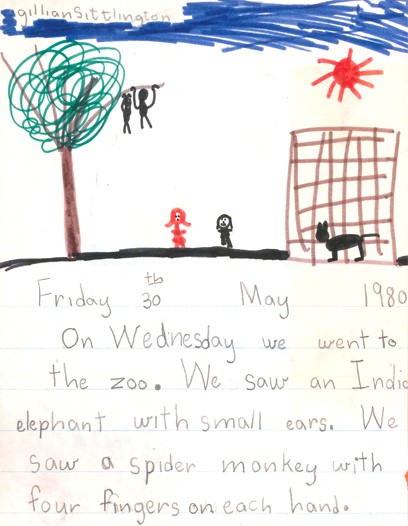 gillian Sittlington
th
Friday 30 May 1980
On Wednesday we went to
the zoo. We saw an
elephant with small ears. We
saw a spider monkey with
four fingers on each hand.